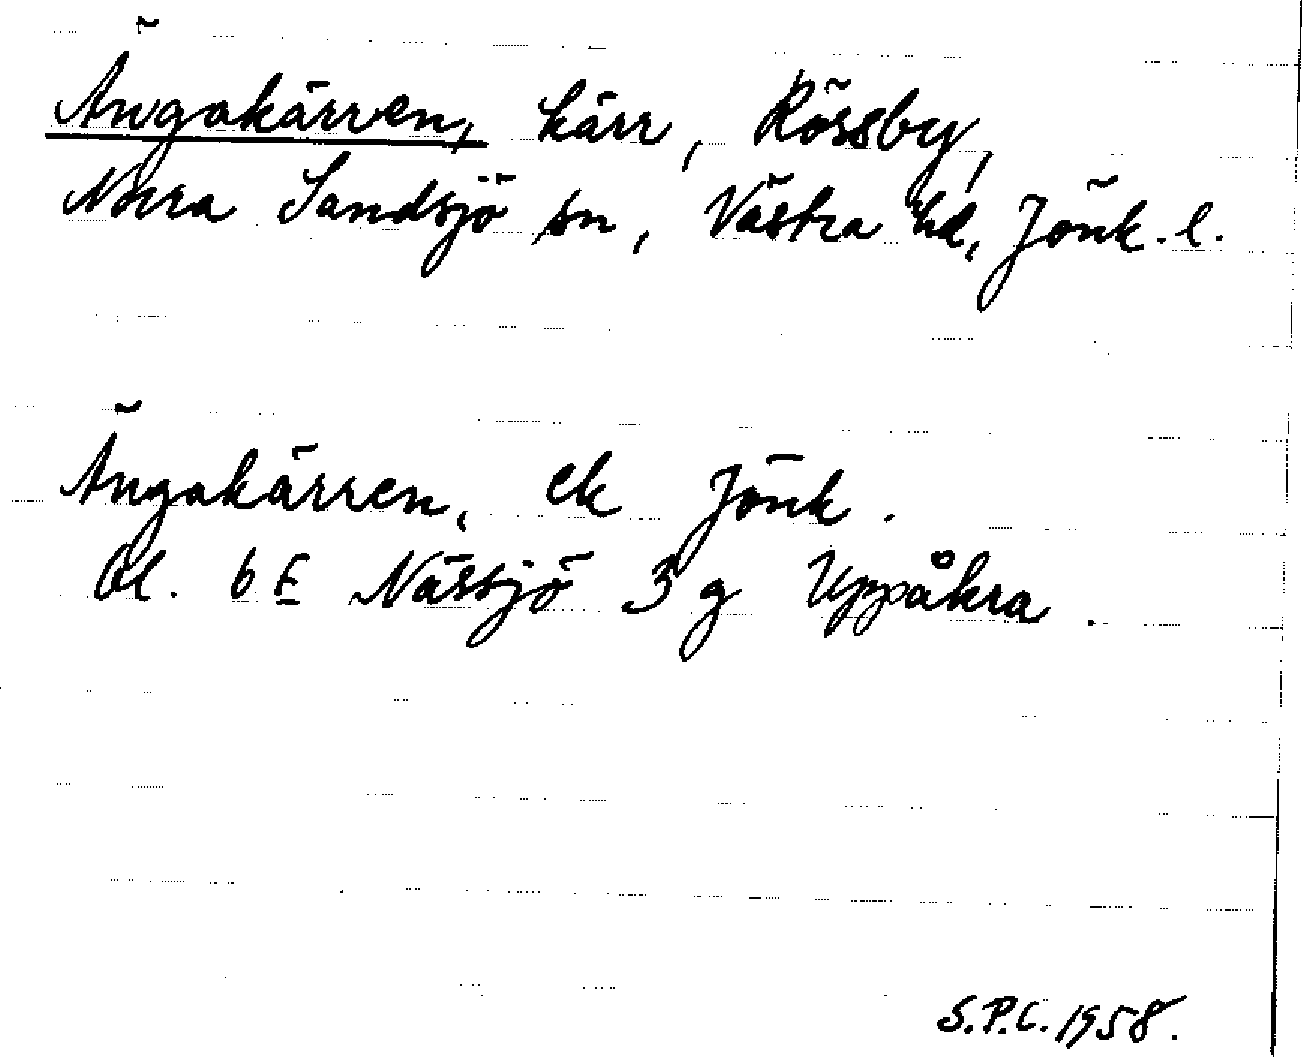 Ängakärren, kärr, Rössby,
Norra Sandsjö sn, Västra hd, Jönk. l.
Ängakärren, ek Jönk.
Bl. 6 E Nässjö 3 g Uppåkra.
S.P.C. 1958.